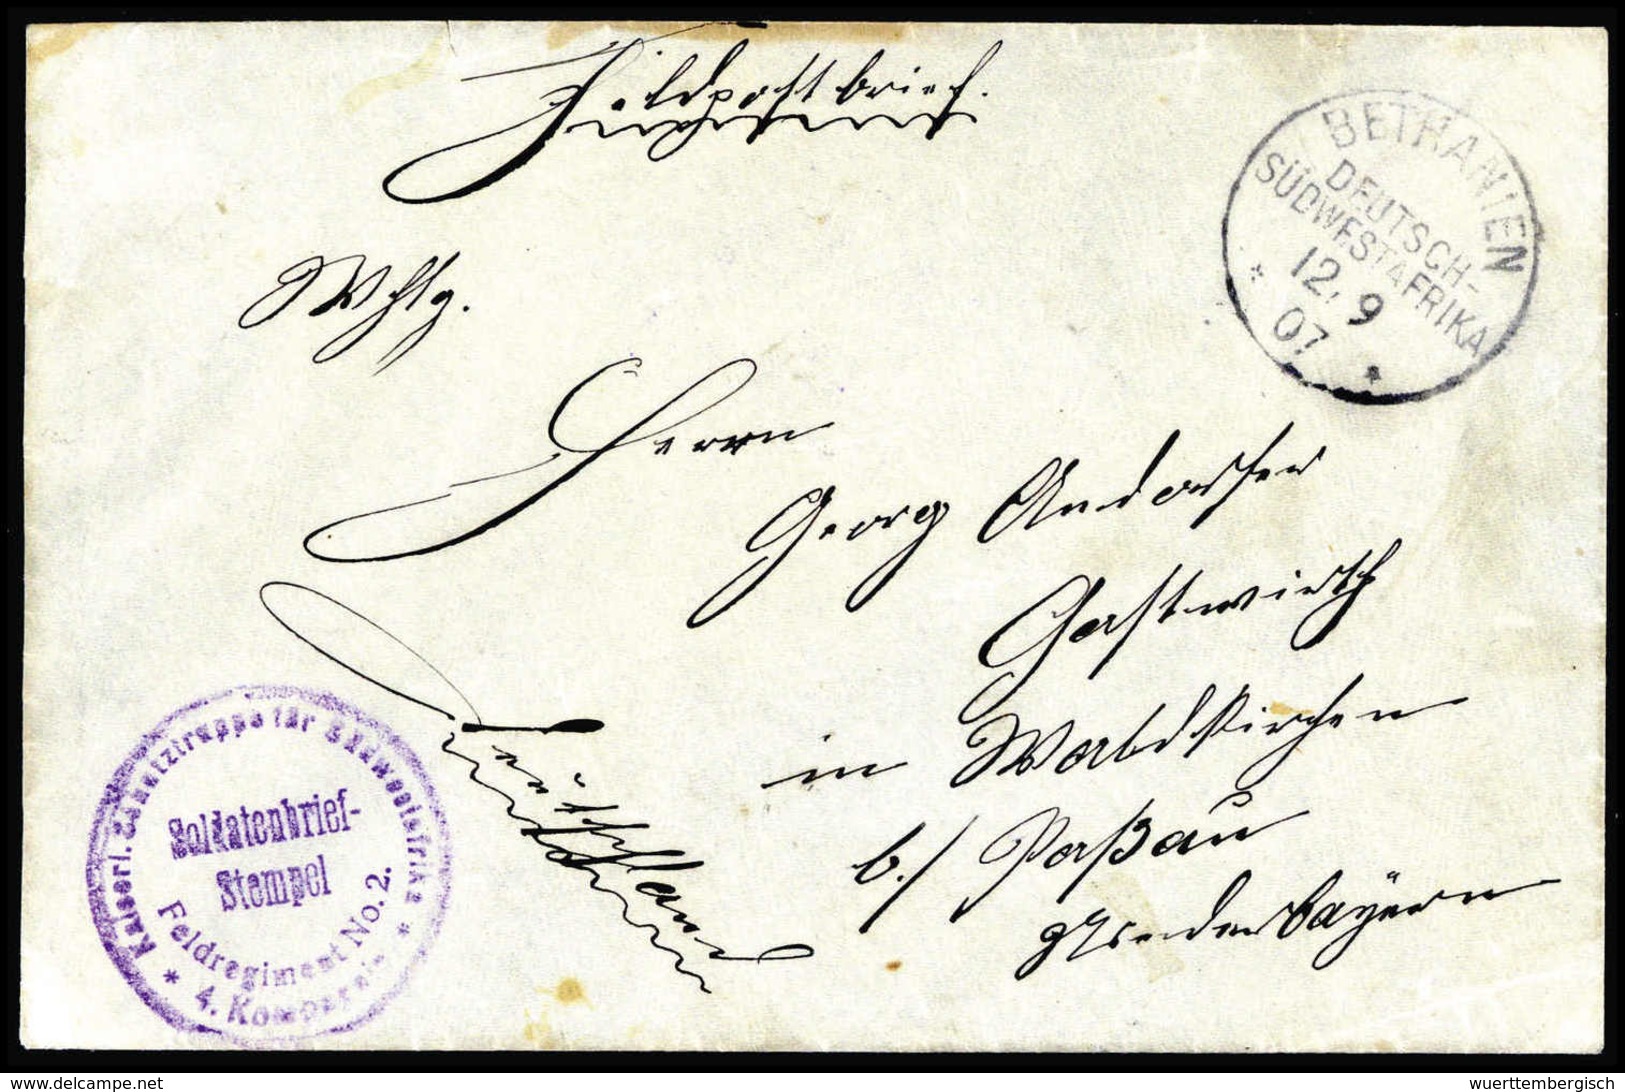 Feldpostbrief.
BETHANIEN
DEUTSCH-
SÜDWESTAFRIKA
12.9
07
Wohlg.
Herrn
Georg Andorfer
Gastwirth
in Waldkirchen
b./ Paßau
Niederbayern
Deutschland
Kaiserl. Schutztruppe für Südwestafrika
Soldatenbrief-
Stempel
Feldregiment No. 2.
4. Kompagnie
www.delcampe.net
wuerttembergisch